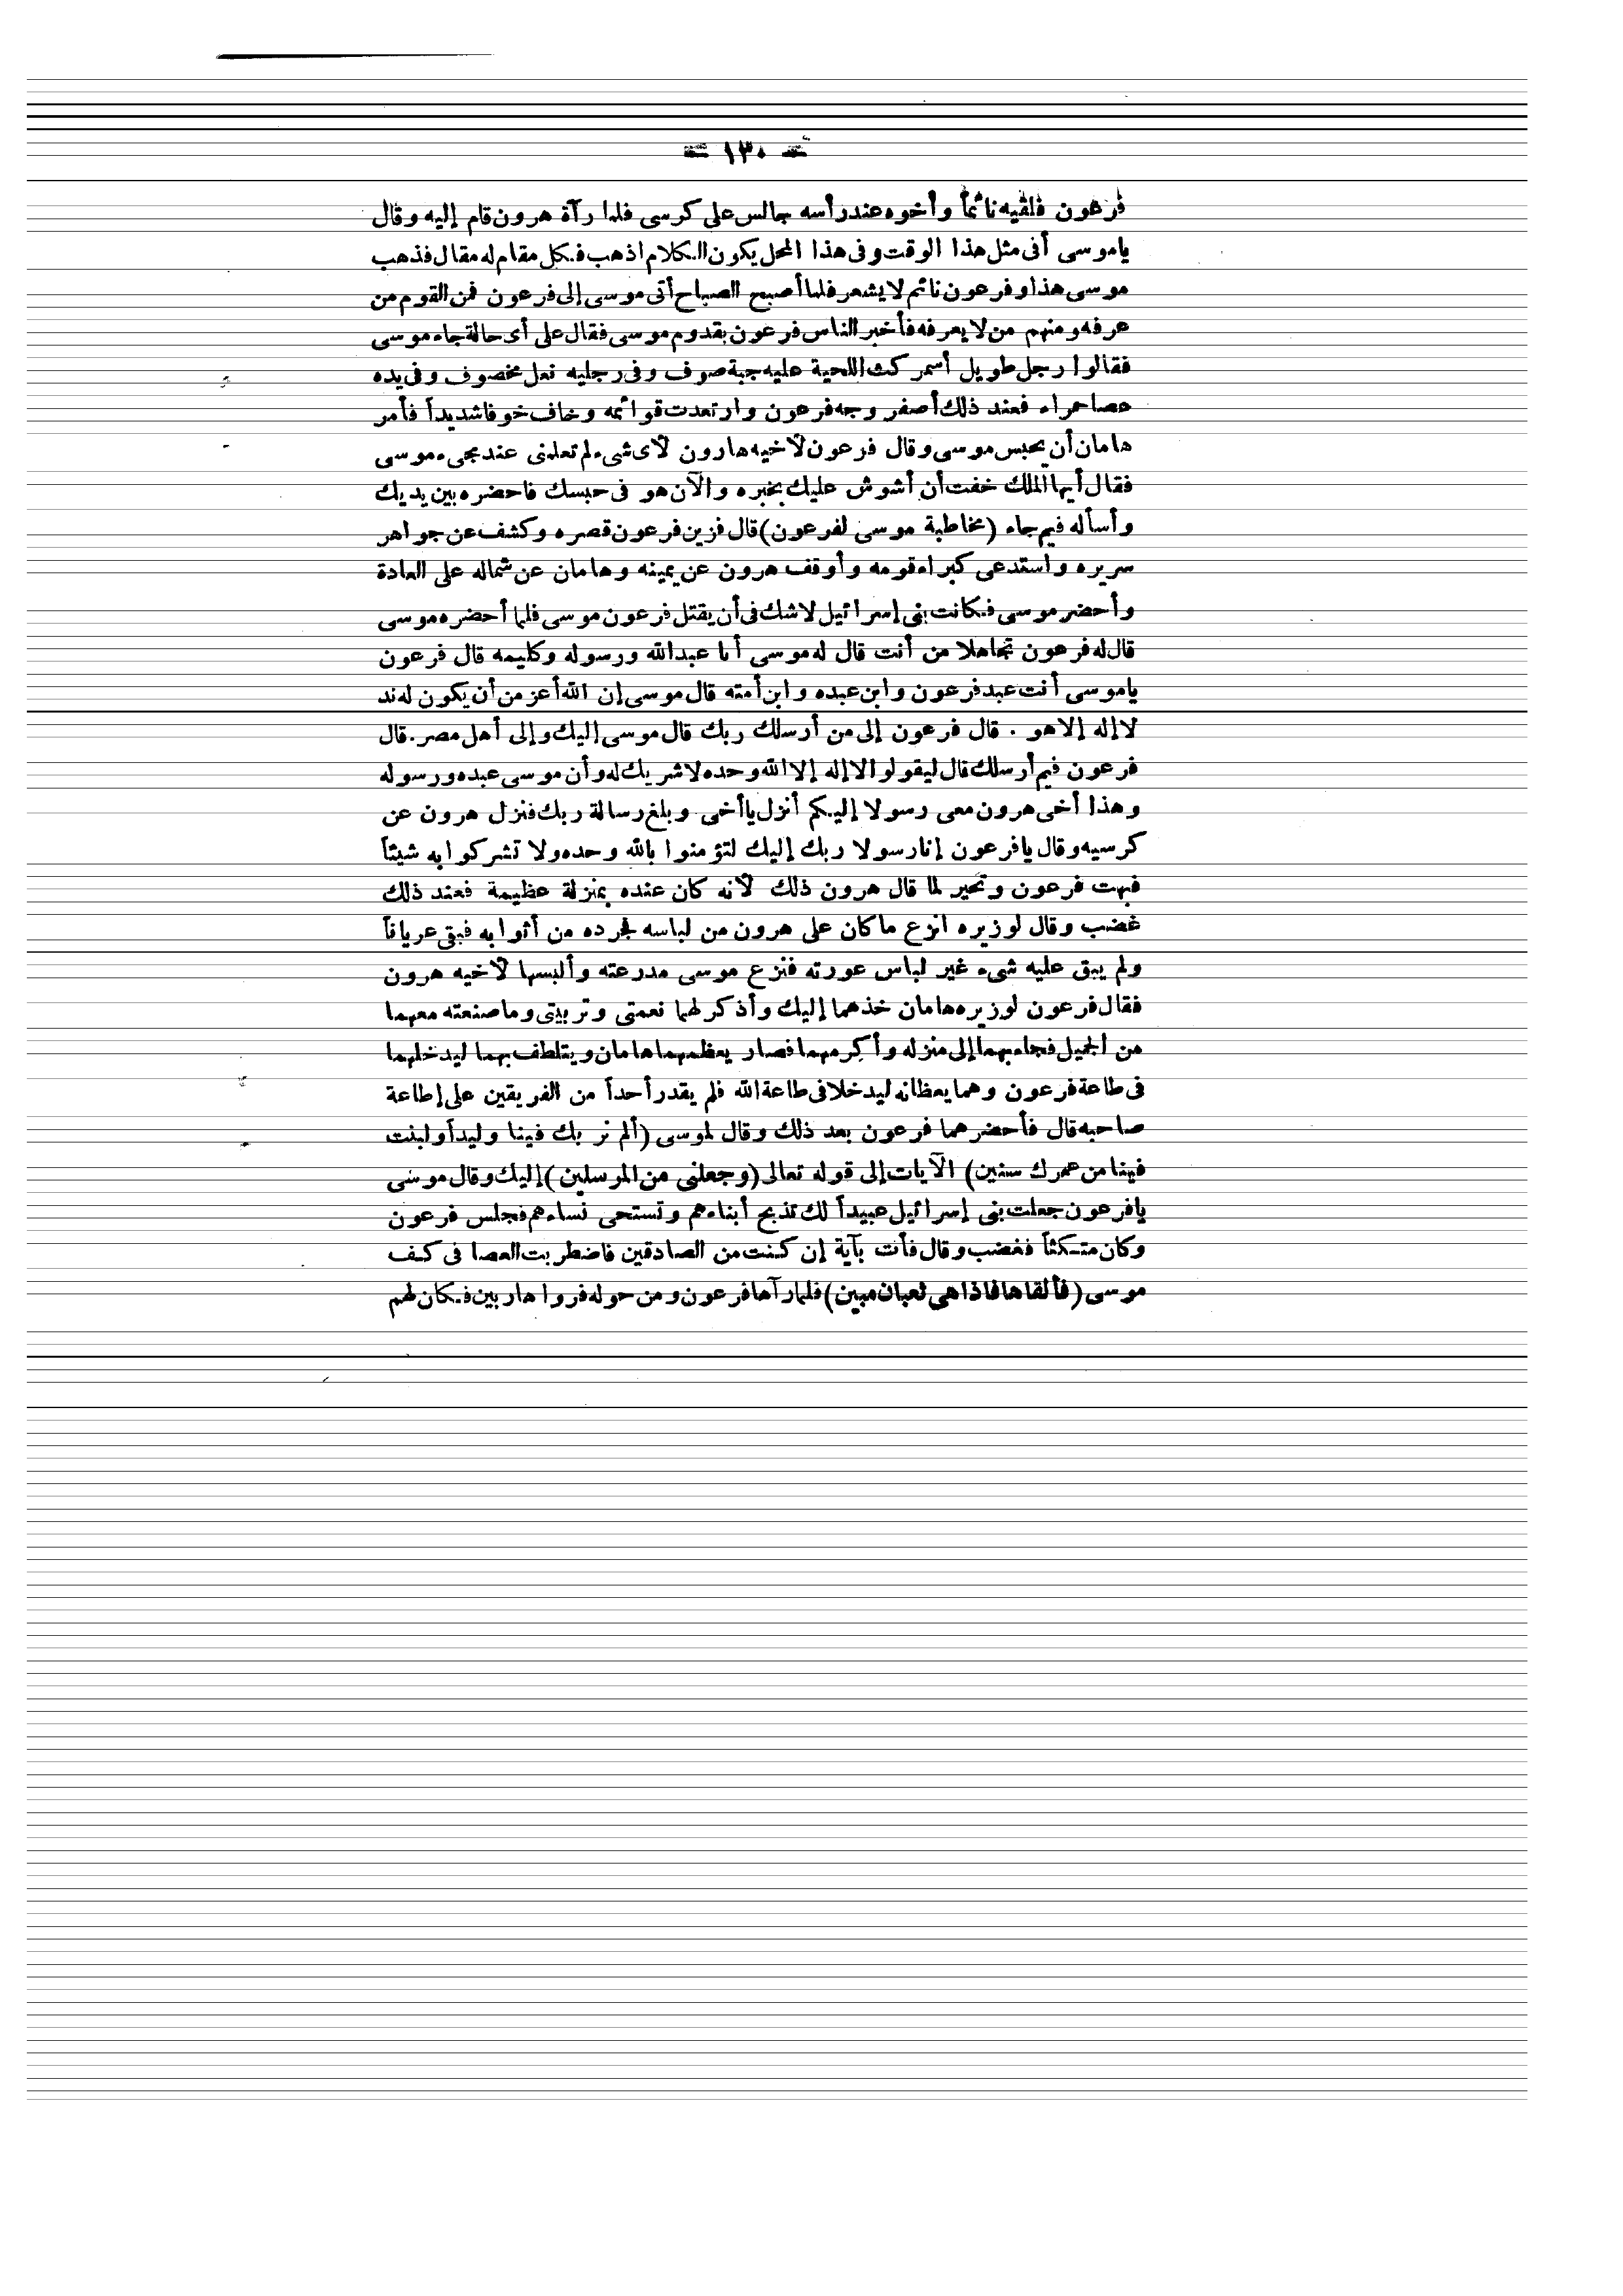 = ١٣٠ =
فرعون فلقيه نائماً وأخوه عند رأسه جالس على كرسى فلما رآة هرون قام إليه وقال
ياموسى أفى مثل هذا الوقت وفى هذا المحل يكون الكلام اذهب فكل مقام له مقال فذهب
موسى هذا وفرعون نائم لا يشعر فلما أصبح الصباح أتى موسى إلى فرعون فمن القوم من
عرفه ومنهم من لا يعرفه فأخبر الناس فرعون بقدوم موسى فقال على أى حالة جاء موسى
فقالوا رجل طويل أسمر كث اللحية عليه جبة صوف وفى رجليه نعل مخصوف وفى يده
عصا حمراء فعند ذلك أصفر وجه فرعون وارتعدت قوائمه وخاف خوفا شديداً فأمر
هامان أن يحبس موسى وقال فرعون لأخيه هارون لأى شىء لم تعلمنى عند مجىء موسى
فقال أيها الملك خفت أن أشوش عليك بخبره والآن هو فى حبسك فاحضره بين يديك
وأسأله فيم جاء (مخاطبة موسى لفرعون) قال فزين فرعون قصره وكشف عن جواهر
سريره واستدعى كبراء قومه وأوقف هرون عن يمينه وهامان عن شماله على العادة
وأحضر موسى فكانت بنى إسرائيل لاشك فى أن يقتل فرعون موسى فلما أحضره موسى
قال له فرعون تجاهلا من أنت قال له موسى أنا عبد الله ورسوله وكليمه قال فرعون
ياموسى أنت عبد فرعون وابن عبده وابن أمته قال موسى إن الله أعز من أن يكون له ند
لا إله إلا هو . قال فرعون إلى من أرسلك ربك قال موسى إليك وإلى أهل مصر . قال
فرعون فيم أرسلك قال ليقولوا لا إله إلا الله وحده لا شريك له وأن موسى عبده ورسوله
وهذا أخى هرون معى رسولا إليكم أنزل يا أخى وبلغ رسالة ربك فنزل هرون عن
كرسيه وقال يافرعون إنا رسولا ربك إليك لتؤمنوا بالله وحده ولا تشركوا به شيئاً
فبهت فرعون وتحير لما قال هرون ذلك لأنه كان عنده بمنزلة عظيمة فعند ذلك
غضب وقال لوزيره انزع ما كان على هرون من لباسه فجرده من أثوابه فبقى عرياناً
ولم يبق عليه شىء غير لباس عورته فنزع موسى مدرعته وألبسها لأخيه هرون
فقال فرعون لوزيره هامان خذهما إليك وأذكر لهما نعمتى وتربيتى وما صنعته معهما
من الجميل فجاء بهما إلى منزله وأكرمهما فصار يعظمهما هامان ويتلطف بهما ليدخلهما
فى طاعة فرعون وهما يعظانه ليدخلا فى طاعة الله فلم يقدر أحداً من الفريقين على إطاعة
صاحبه قال فأحضرهما فرعون بعد ذلك وقال لموسى (ألم نر بك فينا وليداً ولبثت
فينا من عمرك سنين) الآيات إلى قوله تعالى (وجعلنى من المرسلين) إليك وقال موسى
يافرعون جعلت بنى إسرائيل عبيداً لك تذبح أبناءهم وتستحى نساءهم فجلس فرعون
وكان متكئاً فغضب وقال فأت بآية إن كنت من الصادقين فاضطربت العصا فى كف
موسى (فألقاها فاذا هى ثعبان مبين) فلما رآها فرعون ومن حوله فروا هاربين فكان لهم